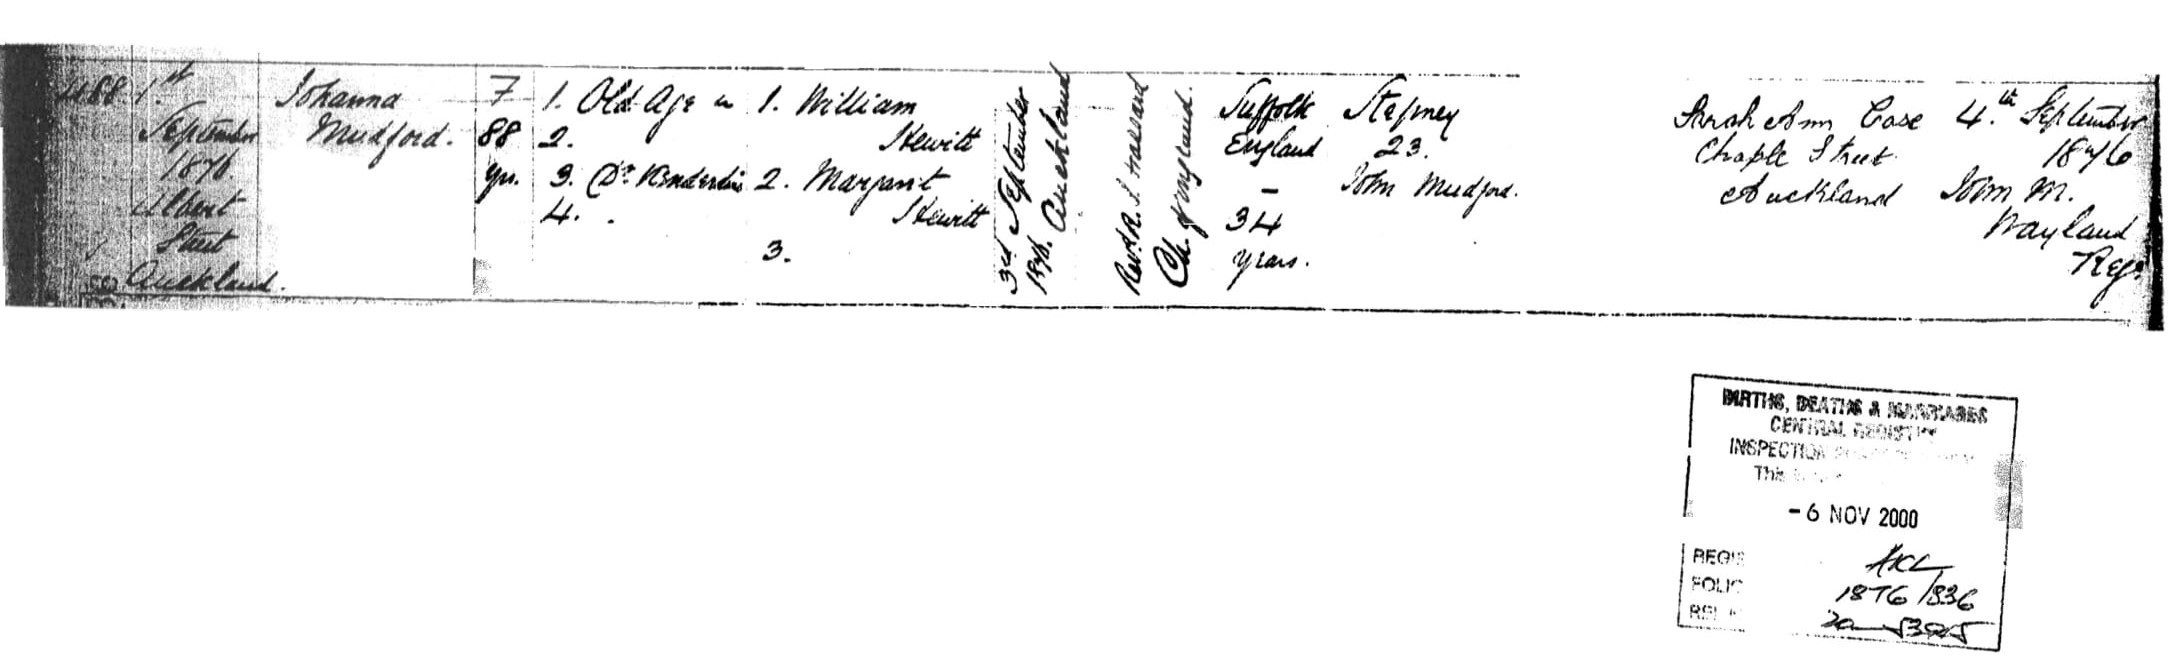 488 1st
September
1876
Albert
Street
Auckland.
Johanna
Mudford.
F
88
yrs.
1. Old Age
2.
3. Dr
4.
1. William
Hewitt
2. Margaret
Hewitt
3.
3rd September
1876. Auckland
Revd. R. S. Hassard
Ch. of England.
Suffolk
England
-
34
years.
Stepney
23.
John Mudford.
Sarah Ann Case
Chaple Street
Auckland
4.th September
1876
John M.
Wayland
Regr.
BIRTHS, DEATHS & MARRIAGES
CENTRAL REGISTRY
INSPECTION
This
- 6 NOV 2000
REGI
AKL
FOLIO
1876/836